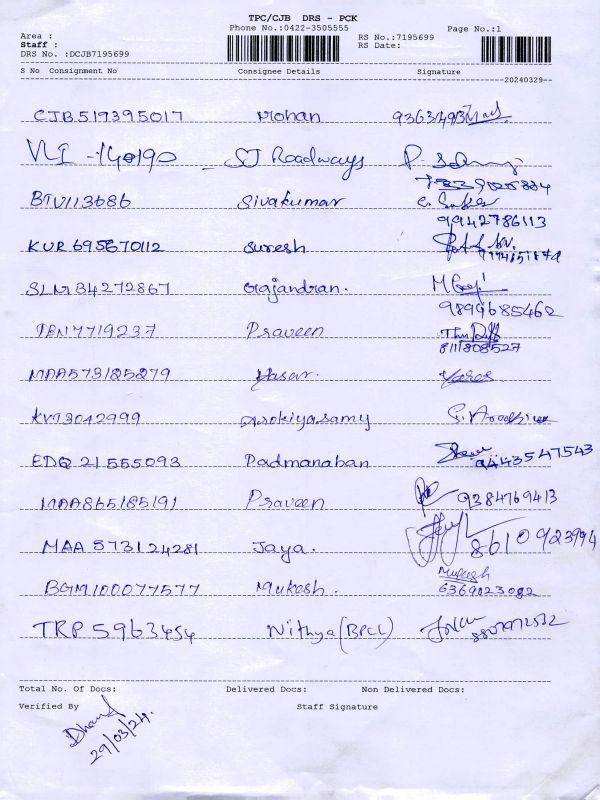 TPC/CJB DRS - PCK
Phone No.:0422-3505555
Area :
Staff :
DRS No. :DCJB7195699
RS No.:7195699
RS Date:
Page No.:1
S No Consignment No Consignee Details Signature
20240329
CJB517395017 Mohan
VLI-140190 - SJ Roadways
BTV113686 Sivakumar
9942786113
KUR695670112 Suresh
SLM134272867 Gajandran.
9899685462
TEN7719237 Praveen
8111808527
MAA573125279 Yasar.
KVT3042999 Arokiyasamy
EDQ 21555093 Padmanaban 9443547543
MAA865185191 Praveen 9384769413
MAA 573124281 Jaya. 8610923994
BGM100077577 Mukesh. Mukesh
6369023082
TRP 5963454 Nithya (BPCL)
Total No. Of Docs: Delivered Docs: Non Delivered Docs:
Verified By Staff Signature
29/03/24.